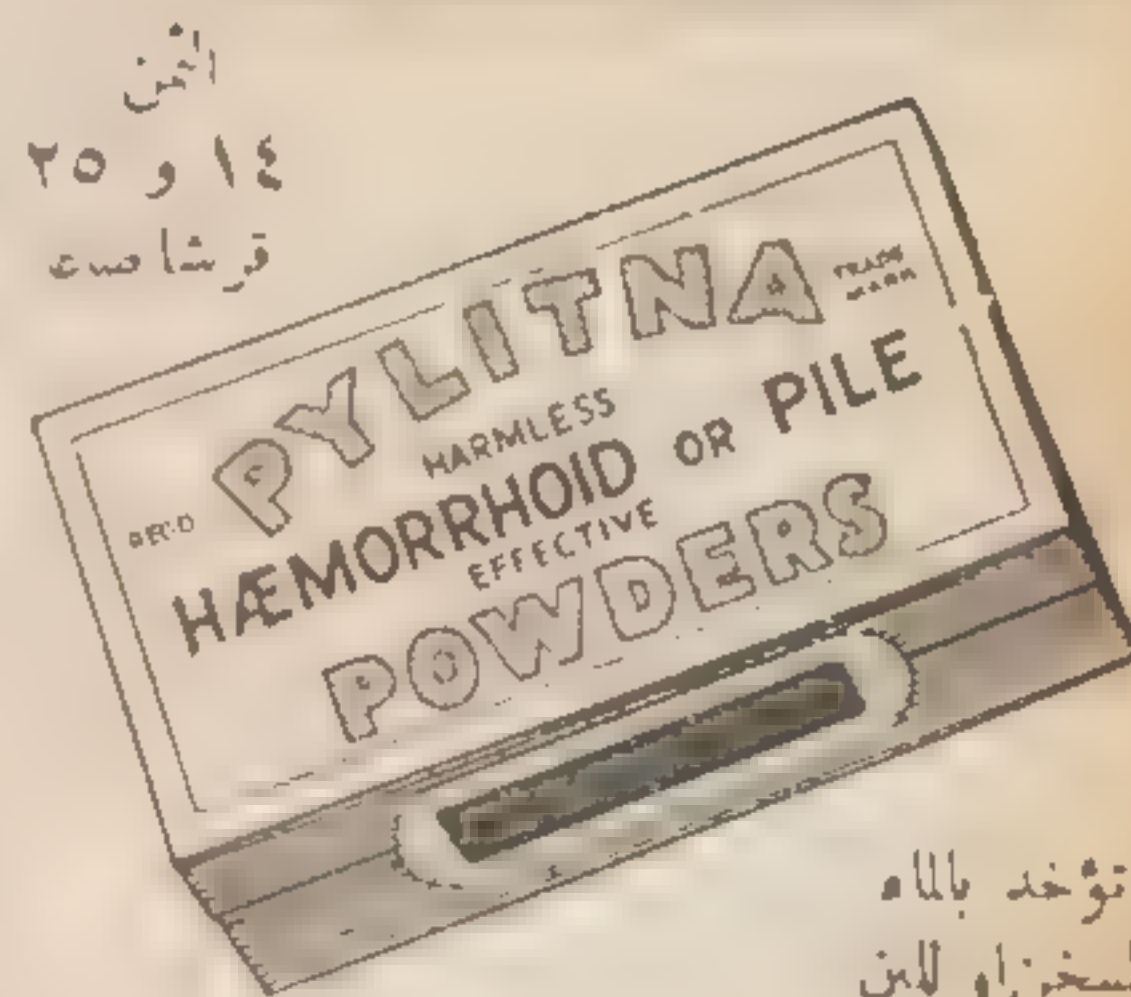 الثمن
١٤ و ٢٥
قرشا صاغ
PYLITNA
TRADE MARK
HARMLESS
REG'D
HÆMORRHOID OR PILE
EFFECTIVE
POWDERS
تؤخذ بالماء